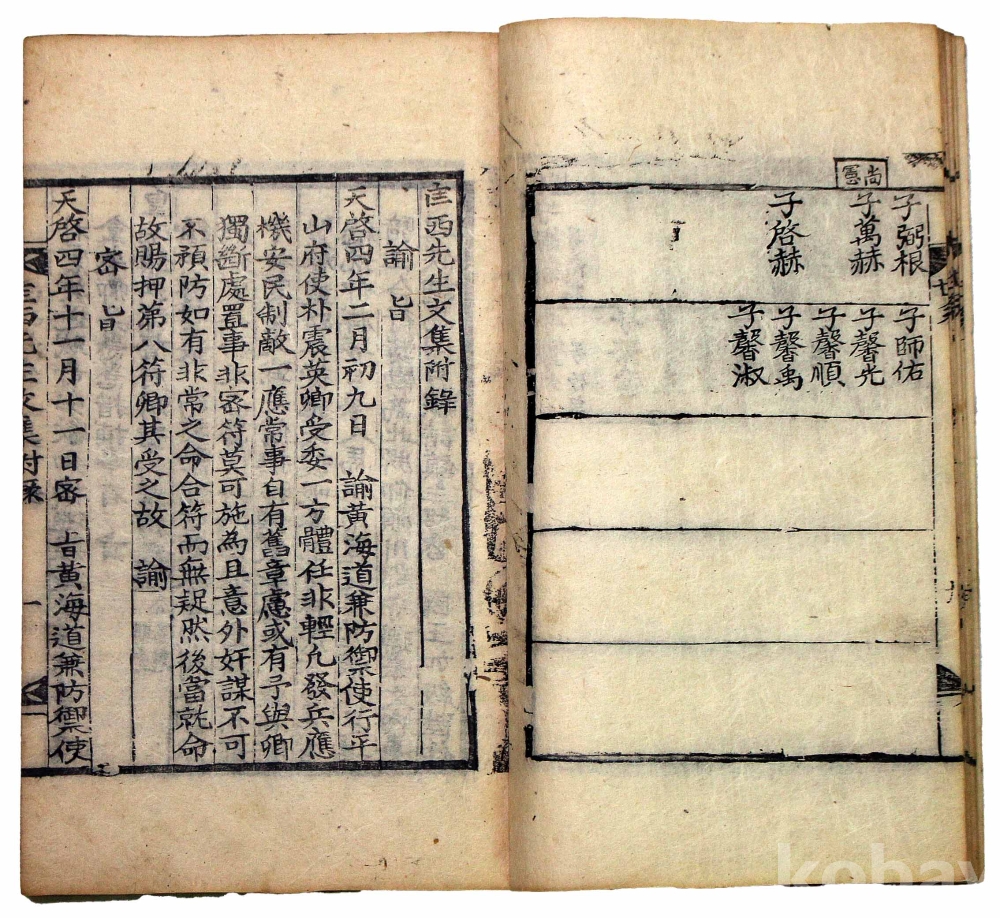 尚雲
子弼根
子萬赫
子啓赫
子師佑
子馨光
子馨順
子馨禹
子馨淑
匡西先生文集附錄
諭旨
天啓四年二月初九日 諭黃海道兼防禦使行平
山府使朴震英卿受委一方體任非輕凡發兵應
機安民制敵一應常事自有舊章慮或有予與卿
獨斷處置事非密符莫可施為且意外奸謀不可
不預防如有非常之命合符而無疑然後當就命
故賜押第八符卿其受之故 諭
密旨
天啓四年十一月十一日密 旨黃海道兼防禦使
匡西先生文集附錄
一
kobay